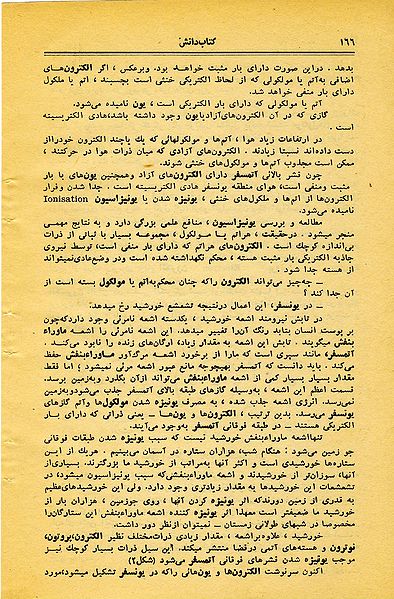 ۱۶۶ کتاب دانش
بدهد . دراین صورت دارای بار مثبت خواهد بود. وبرعکس ، اگر الکترون‌های
اضافی به‌اتم یا مولکولی که از لحاظ الکتریکی خنثی است بچسبند ، اتم یا ملکول
دارای بار منفی خواهد شد.
اتم یا مولکولی که دارای بار الکتریکی است ، یون نامیده می‌شود.
گازی که در آن الکترون‌های‌آزادیایون وجود داشته باشد،هادی الکتریسیته
است .
در ارتفاعات زیاد هوا ، اتم‌ها و مولکولهائی که یك یاچند الکترون خودرااز
دست داده‌اند نسبتا زیادند . الکترون‌های آزادی که میان ذرات هوا در حرکتند ،
ممکن است مجذوب اتم‌ها و مولکول‌های خنثی شوند.
چون قشر بالائی آتمسفر دارای الکترون‌های آزاد وهمچنین یون‌های با بار
مثبت ومنفی است، هوای منطقه یونسفر هادی الکتریسیته است . جدا شدن وفرار
الکترون‌ها از اتم‌ها و ملکول‌های خنثی ، یونیزه شدن یا یونیزاسیون Ionisation
نامیده می‌شود.
مطالعه و بررسی یونیزاسیون ، منافع علمی بزرگی دارد و به نتایج مهمی
منجر میشود . درحقیقت ، هراتم یا مولکول ، مجموعه بسیار با ثباتی از ذرات
بی‌اندازه کوچك است . الکترون‌های هراتم که دارای بار منفی است، توسط نیروی
جاذبه الکتریکی بار مثبت هسته ، محکم نگهداشته شده است ودر وضع‌عادی‌نمیتواند
از هسته جدا شود .
ــ چه‌چیز می‌تواند الکترون راکه چنان محکم‌به‌اتم یا مولکول بسته است از
آن جدا کند ؟
ــ در یونسفر، این اعمال درنتیجه تشعشع خورشید رخ میدهد.
در تابش نیرومند اشعه خورشید ، یکدسته اشعه نامرئی وجود داردکه‌چون
بر پوست انسان بتابد رنگ آن‌را تغییر میدهد. این اشعه نامرئی را اشعه ماوراء
بنفش میگویند . تابش این اشعه به مقدار زیاد، ارگان‌های زنده را نابود می‌کند .
آتمسفر، مانند سپری است که مارا از برخورد اشعه مرگ‌آور ماوراءبنفش حفظ
می‌کند . باید دانست که آتمسفر بهیچوجه مانع عبور اشعه مرئی نمیشود ؛ اما فقط
مقدار بسیار بسیار کمی از اشعه ماوراءبنفش می‌تواند ازآن بگذرد وبه‌زمین برسد.
قسمت اعظم این اشعه ، به‌وسیله گازهای طبقه بالای آتمسفر جذب می‌شودوبه‌زمین
نمی‌رسد. انرژی اشعه جذب شده ، به مصرف یونیزه شدن مولکول‌ها واتم گازهای
یونسفر می‌رسد. بدین ترتیب ، الکترون‌ها و یون‌ها ــ یعنی ذراتی که دارای بار
الکتریکی هستند ــ در طبقه فوقانی آتمسفر به‌وجود می‌آیند.
تنهااشعه ماوراءبنفش خورشید نیست که سبب یونیزه شدن طبقات فوقانی
جو زمین می‌شود : هنگام شب، هزاران ستاره در آسمان می‌بینیم . هریك از این
ستاره‌ها خورشیدی است و اکثر آنها به‌مراتب از خورشید ما بزرگترند. بسیاری‌از
آنها، سوزان‌تر از خورشیدند و اشعه ماوراءبنفش‌که سبب یونیزاسیون میشود، در
تشعشعات این خورشیدها به مقدار زیادتری وجود دارد. ولی این خورشیدهای‌عظیم
به قدری از زمین دورندکه اثر یونیزه کردن آنها ، روی جوزمین ، هزاران بار از
خورشید ما ضعیفتر است معهذا اثر یونیزه کننده اشعه ماوراءبنفش این ستارگان‌را
مخصوصا در شبهای طولانی زمستان ــ نمیتوان ازنظر دور داشت.
خورشید ، علاوه‌براشعه ، مقدار زیادی ذرات‌مختلف نظیر الکترون،پروتون،
نوترون و هسته‌های اتمی درفضا منتشر میکند. این سیل ذرات بسیار کوچك نیز
موجب یونیزه شدن قشرهای فوقانی آتمسفر می‌شود (شکل۲)
اکنون سرنوشت الکترون‌ها و یون‌هائی راکه در یونسفر تشکیل میشود،مورد